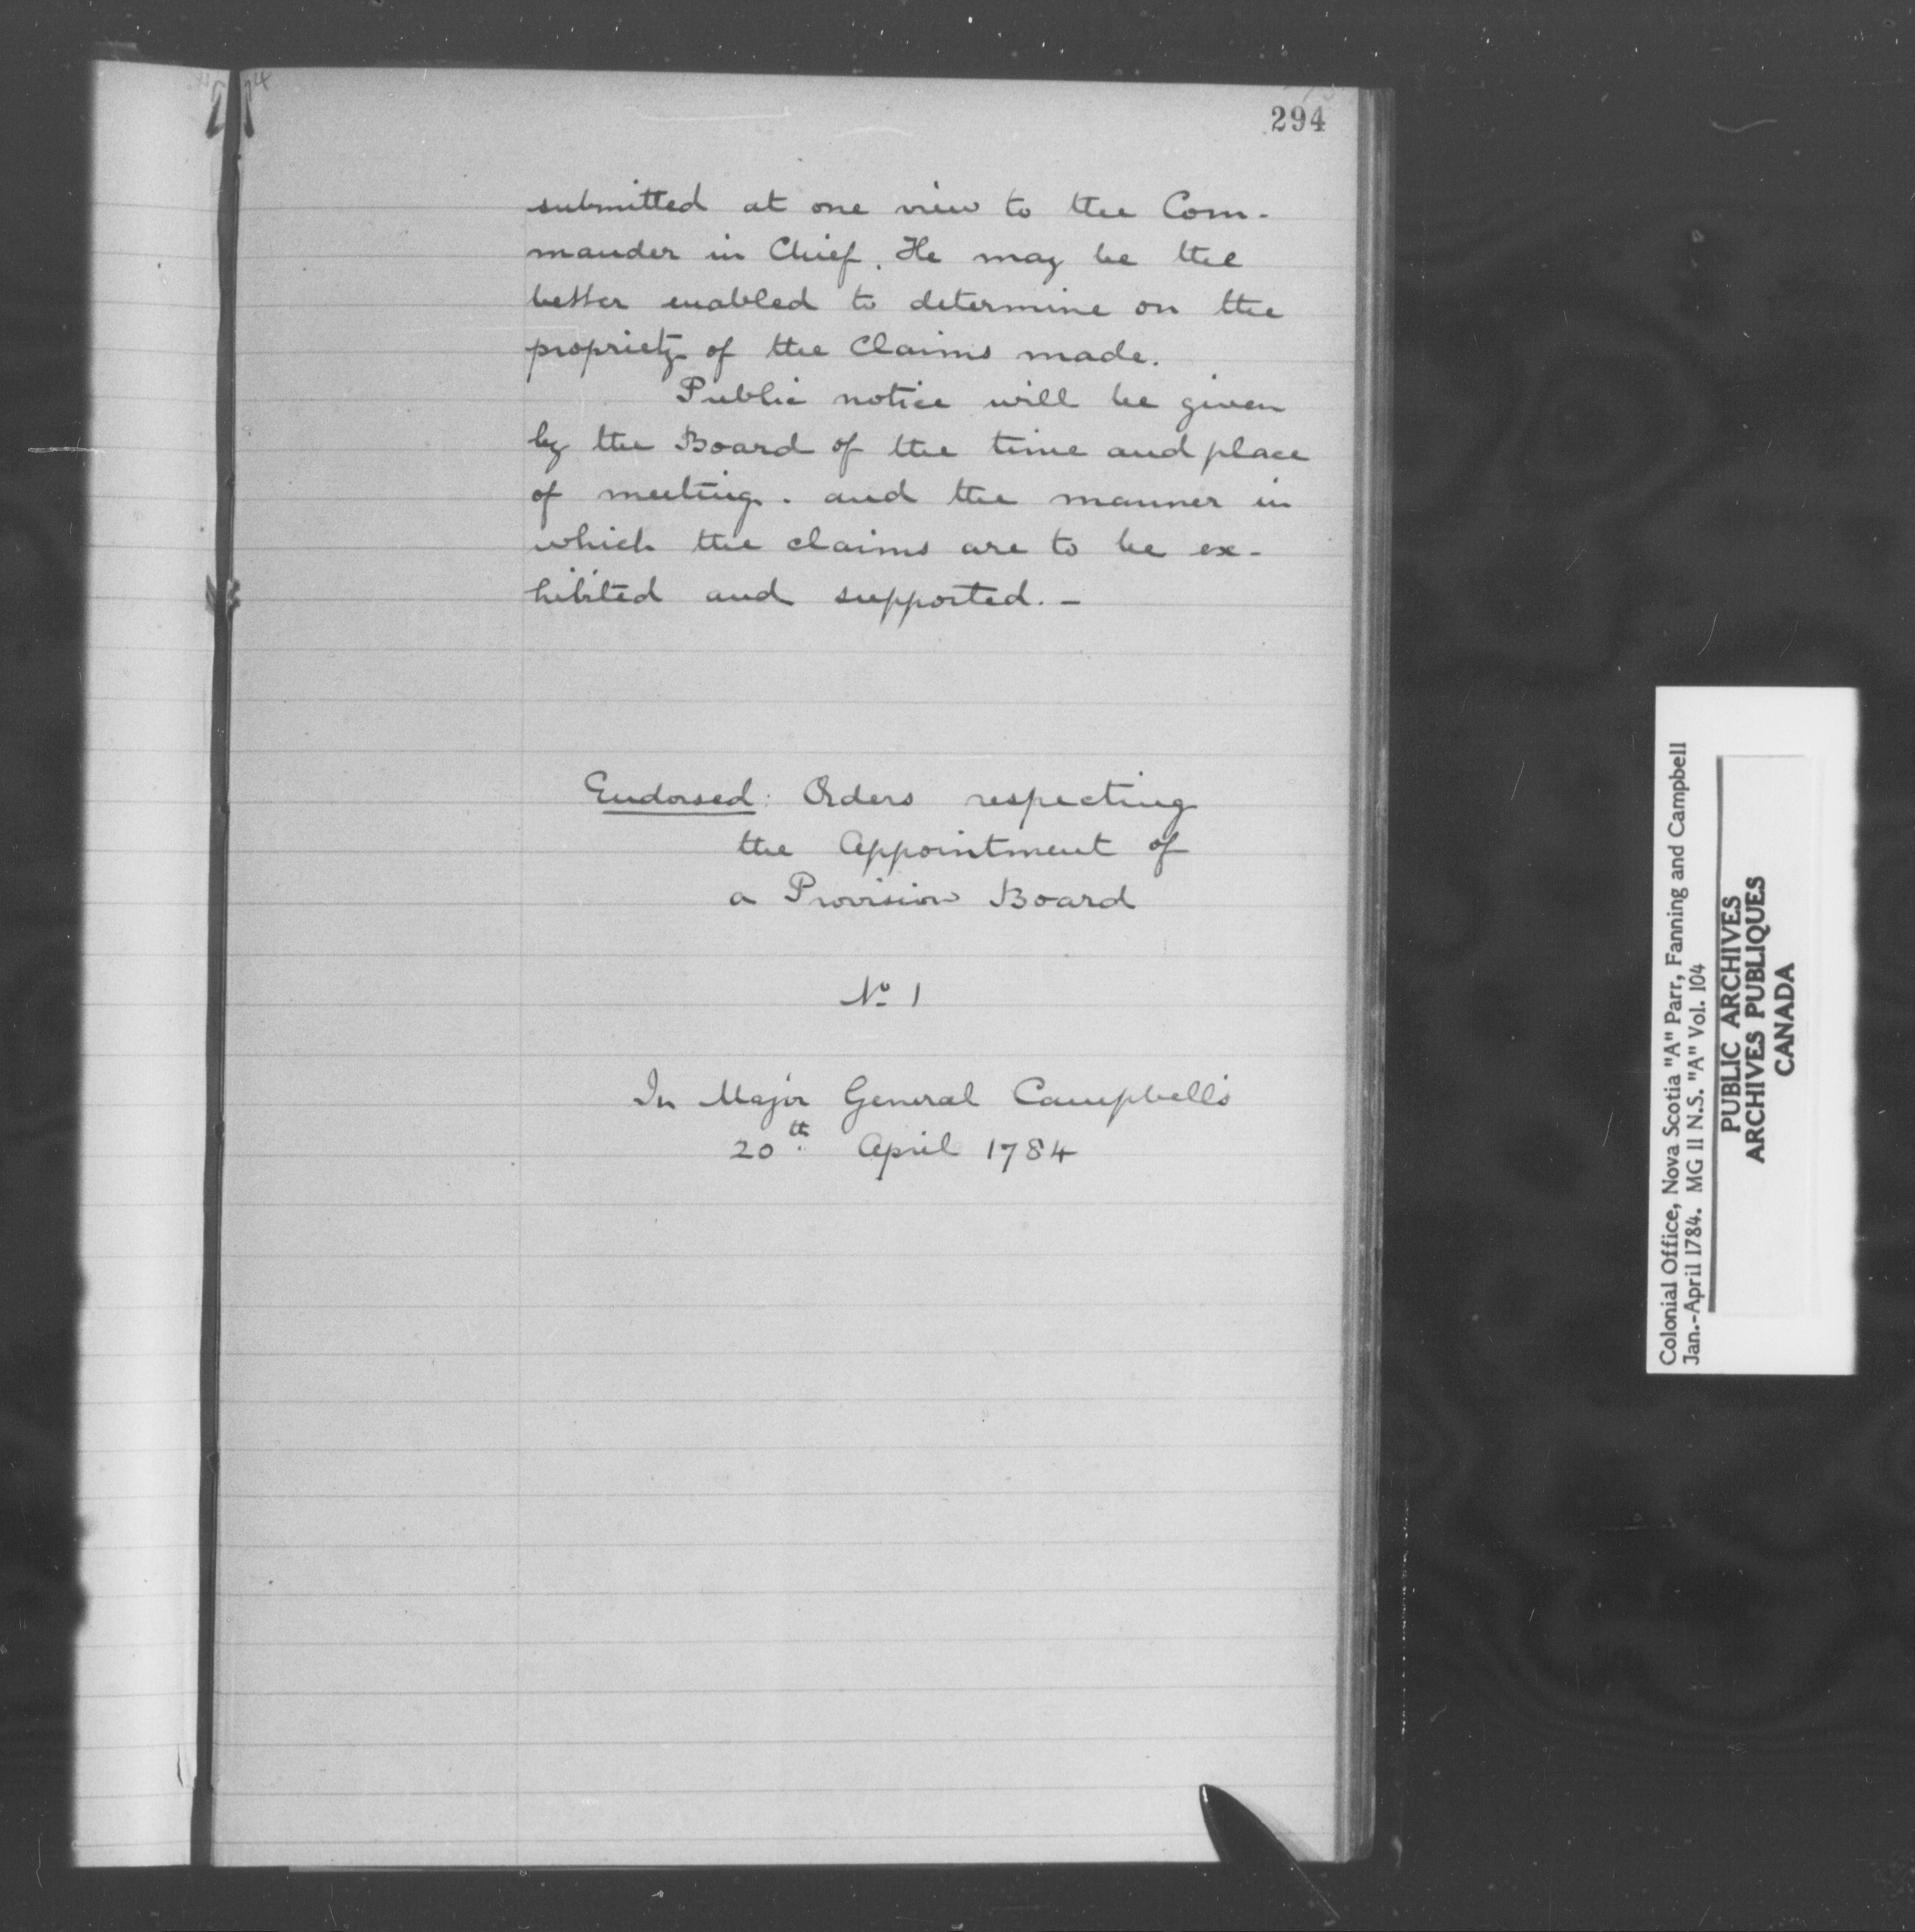 294
submitted at one view to the Com-
mander in Chief. He may be the
better enabled to determine on the
propriety of the Claims made.
Public notice will be given
by the Board of the time and place
of meeting. and the manner in
which the claims are to be ex-
hibited and supported. -
Endorsed: Orders respecting
the Appointment of
a Provision Board
No 1
In Major General Campbell's
20th April 1784
Colonial Office, Nova Scotia "A" Parr, Fanning and Campbell
Jan.-April 1784. MG 11 N.S. "A" Vol. 104
PUBLIC ARCHIVES
ARCHIVES PUBLIQUES
CANADA